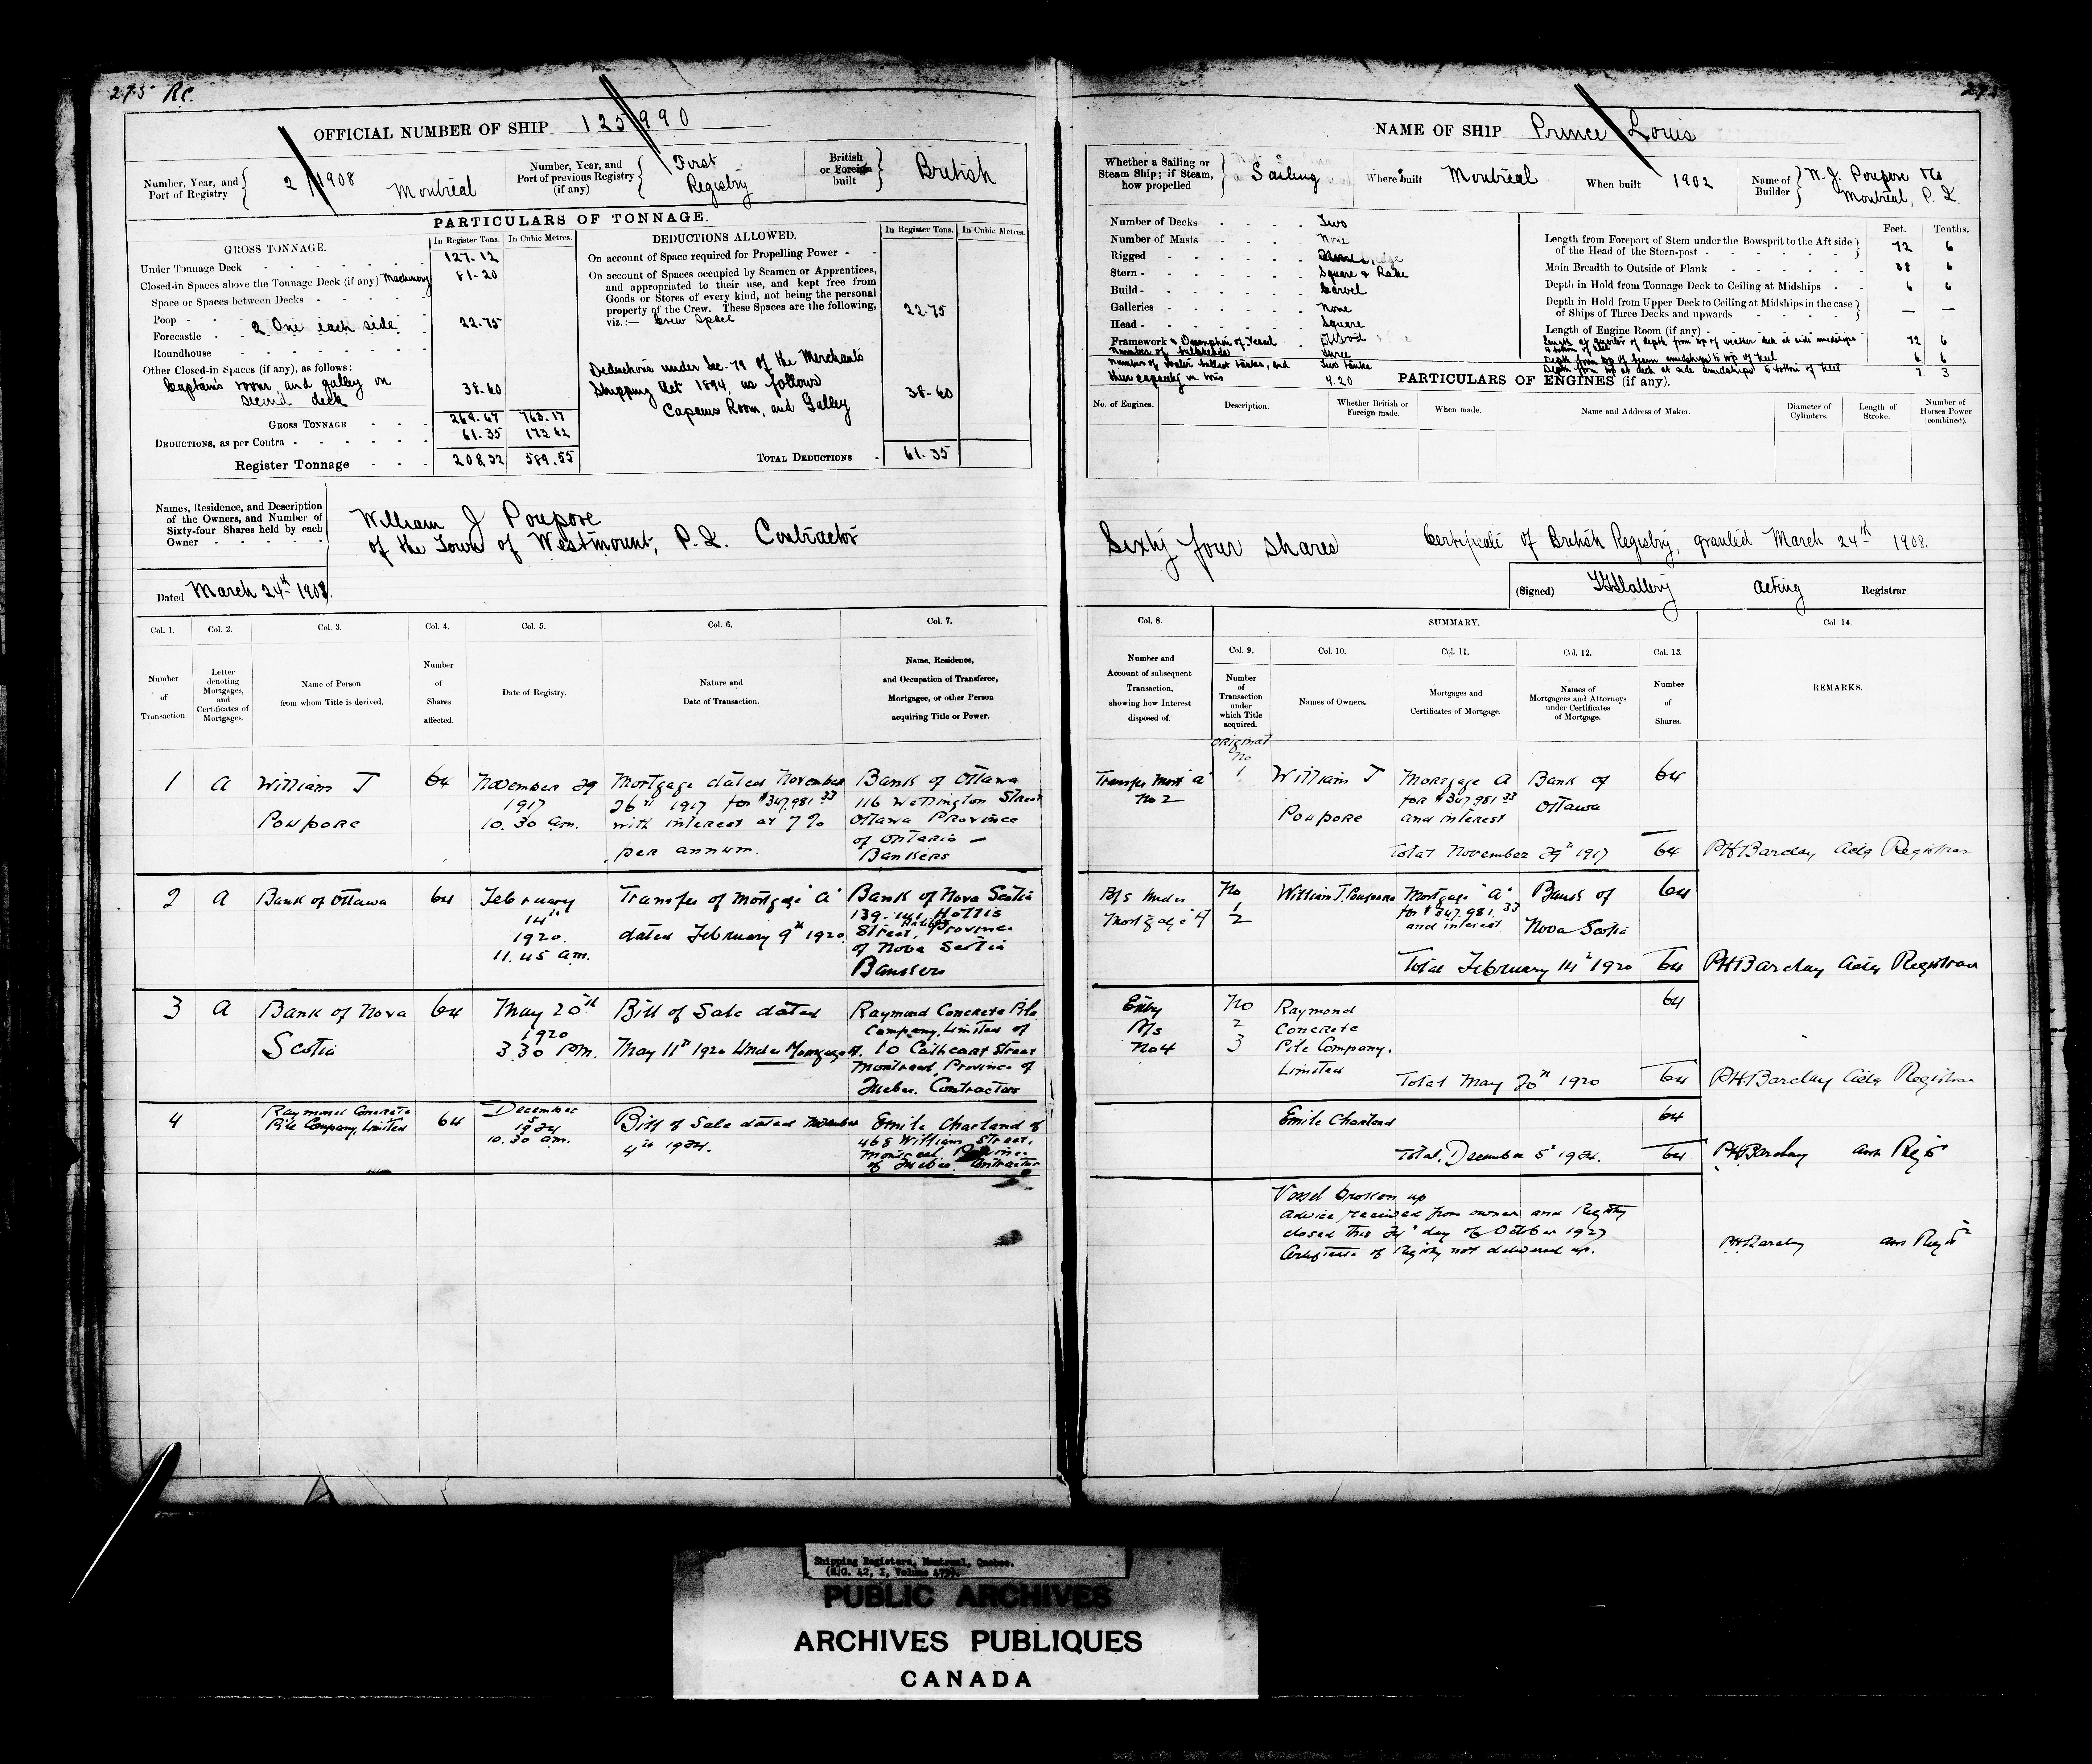 275 Rc.
OFFICIAL NUMBER OF SHIP 125990
Number, Year, and
Port of Registry
2/1908 Montreal
Number, Year, and
Port of previous Registry
(if any)
First
Registry
British
or Foreign
built
British
PARTICULARS OF TONNAGE.
GROSS TONNAGE.
In Register Tons.
In Cubic Metres.
Under Tonnage Deck 127.12
Closed-in Spaces above the Tonnage Deck (if any) Machinery 81-20
Space or Spaces between Decks
Poop
Forecastle 2 One each side 22-75
Roundhouse
Other Closed-in Spaces (if any), as follows:
Captain's room, and galley on
second deck 38-60
GROSS TONNAGE 269.67 763.17
DEDUCTIONS, as per Contra 61.35 173.62
Register Tonnage 208.32 589.55
DEDUCTIONS ALLOWED.
In Register Tons.
In Cubic Metres.
On account of Space required for Propelling Power
On account of Spaces occupied by Seamen or Apprentices,
and appropriated to their use, and kept free from
Goods or Stores of every kind, not being the personal
property of the Crew. These Spaces are the following,
viz.:— Crew Space 22.75
Deductions under Sec. 79 of the Merchants
Shipping Act 1894, as follows
Captains Room, and Galley 38-60
TOTAL DEDUCTIONS 61.35
Names, Residence, and Description
of the Owners, and Number of
Sixty-four Shares held by each
Owner
William J Poupore
of the Town of Westmount, P.Q. Contractor
Dated March 24th 1908.
Col. 1.
Number
of
Transaction.
Col. 2.
Letter
denoting
Mortgages,
and
Certificates of
Mortgages.
Col. 3.
Name of Person
from whom Title is derived.
Col. 4.
Number
of
Shares
affected.
Col. 5.
Date of Registry.
Col. 6.
Nature and
Date of Transaction.
Col. 7.
Name, Residence,
and Occupation of Transferee,
Mortgagee, or other Person
acquiring Title or Power.
1
A
William J
Poupore
64
November 29
1917
10.30 am.
Mortgage dated November
26th 1917 for $347,981 33
with interest at 7%
per annum.
Bank of Ottawa
116 Wellington Street
Ottawa Province
of Ontario —
Bankers
2
A
Bank of Ottawa
64
February
14th
1920.
11.45 am.
Transfer of Mortgage "A"
dated February 9th 1920
Bank of Nova Scotia
139-141 Hollis
Street, Halifax Province
of Nova Scotia
Bankers
3
A
Bank of Nova
Scotia
64
May 20th
1920
3.30 P.m.
Bill of Sale dated
May 11th 1920 Under Mortgage A.
Raymond Concrete Pile
Company, Limited of
10 Cathcart Street
Montreal, Province of
Quebec. Contractors
4
Raymond Concrete
Pile Company, Limited
64
December
5
1924
10.30 am.
Bill of Sale dated November
4th 1924.
Emile Charland of
468 William Street,
Montreal, Province
of Quebec. Contractor
NAME OF SHIP Prince Louis
Whether a Sailing or
Steam Ship; if Steam,
how propelled
Sailing
Where built Montreal
When built 1902
Name of
Builder
W. J. Poupore &Co
Montreal, P. Q.
Number of Decks Two
Number of Masts None
Rigged
Stern Square & Rake
Build Carvel
Galleries None
Head Square
Framework & Description of Vessel Wood
Number of bulkheads Three
Number of water ballast tanks, and Two tanks
their capacity in tons 4.20
Feet. Tenths.
Length from Forepart of Stem under the Bowsprit to the Aft side
of the Head of the Stern-post 72 6
Main Breadth to Outside of Plank 38 6
Depth in Hold from Tonnage Deck to Ceiling at Midships 6 6
Depth in Hold from Upper Deck to Ceiling at Midships in the case
of Ships of Three Decks and upwards — —
Length of Engine Room (if any)
Length at quarter of depth from top of weather deck at side amidships
to bottom of keel 72 6
Depth from top of beam amidships to top of keel 6 6
Depth from top of deck at side amidships to bottom of keel 7 3
PARTICULARS OF ENGINES (if any).
No. of Engines.
Description.
Whether British or
Foreign made.
When made.
Name and Address of Maker.
Diameter of
Cylinders.
Length of
Stroke.
Number of
Horses Power
(combined).
Sixty four shares
Certificate of British Registry, granted March 24th 1908.
(Signed) acting Registrar
Col. 8.
Number and
Account of subsequent
Transaction,
showing how Interest
disposed of.
SUMMARY.
Col. 9.
Number
of
Transaction
under
which Title
acquired.
Col. 10.
Names of Owners.
Col. 11.
Mortgages and
Certificates of Mortgage.
Col. 12.
Names of
Mortgagees and Attorneys
under Certificates
of Mortgage.
Col. 13.
Number
of
Shares.
Col 14.
REMARKS.
Transfer Mort "a"
No 2
Original
No
1
William J
Poupore
Mortgage A
for $347,981 33
and interest
Bank of
Ottawa
64
Total November 29th 1917 64
PH Barclay Actg Registrar
B/S Under
Mortgage A
No
1
2
William J. Poupore
Mortgage "A"
for $347,981.33
and interest
Bank of
Nova Scotia
64
Total February 14th 1920 64
PH Barclay Actg Registrar
Entry
B/s
No 4
No
2
3
Raymond
Concrete
Pile Company,
Limited
64
Total May 20th 1920 64
PH Barclay Actg Registrar
Emile Charland
64
Total, December 5th 1924. 64
PH Barclay
Vessel broken up
advice received from owner and Registry
closed this day of October 1927
Certificate of Registry not delivered up.
PH Barclay
Shipping Registers, Montreal, Quebec.
(R.G. 42, I, Volume 475).
PUBLIC ARCHIVES
ARCHIVES PUBLIQUES
CANADA